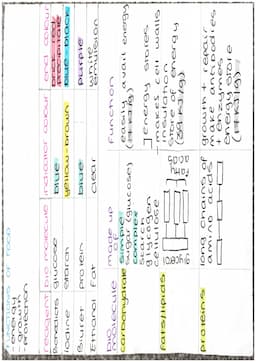 - energy
- growth
- protection
reagent bio molecule indicator colour end colour
Benedicts glucose blue brick red precipitate
Iodine starch yellow-brown blue-black
Biuret protein blue purple
Ethanol fat clear white emulsion
bio molecule made up of function
carbohydrate simple sugar (glucose) easily avail energy
complex
starch
glycogen
cellulose
energy stores
makes cell walls
fats/lipids
glycerol
fatty acids
insulation
store of energy
proteins long chains of amino acids
growth + repair
make antibodies
+ enzymes
energy store